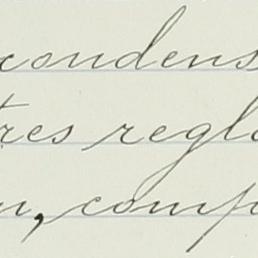 condens
tres regla
n, comp